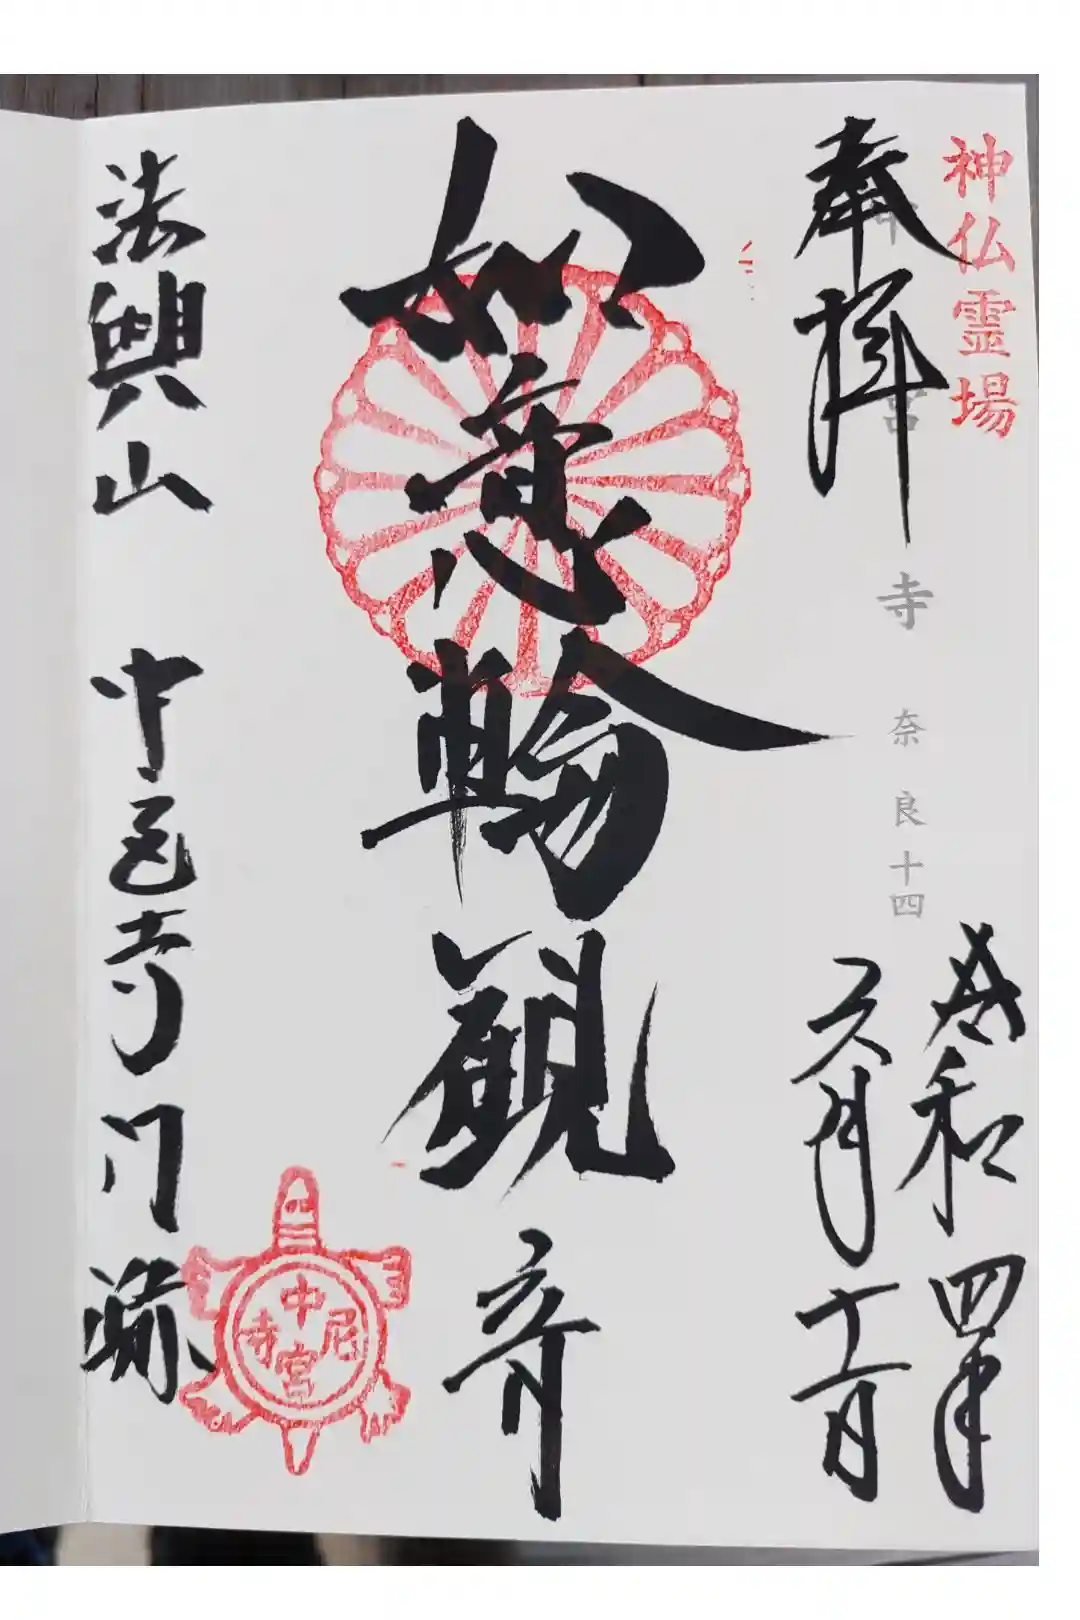 神仏霊場
奉拝
中宮寺 奈良十四
令和四年
六月十一日
如意輪觀音
法興山 中宮寺門跡
中宮尼寺